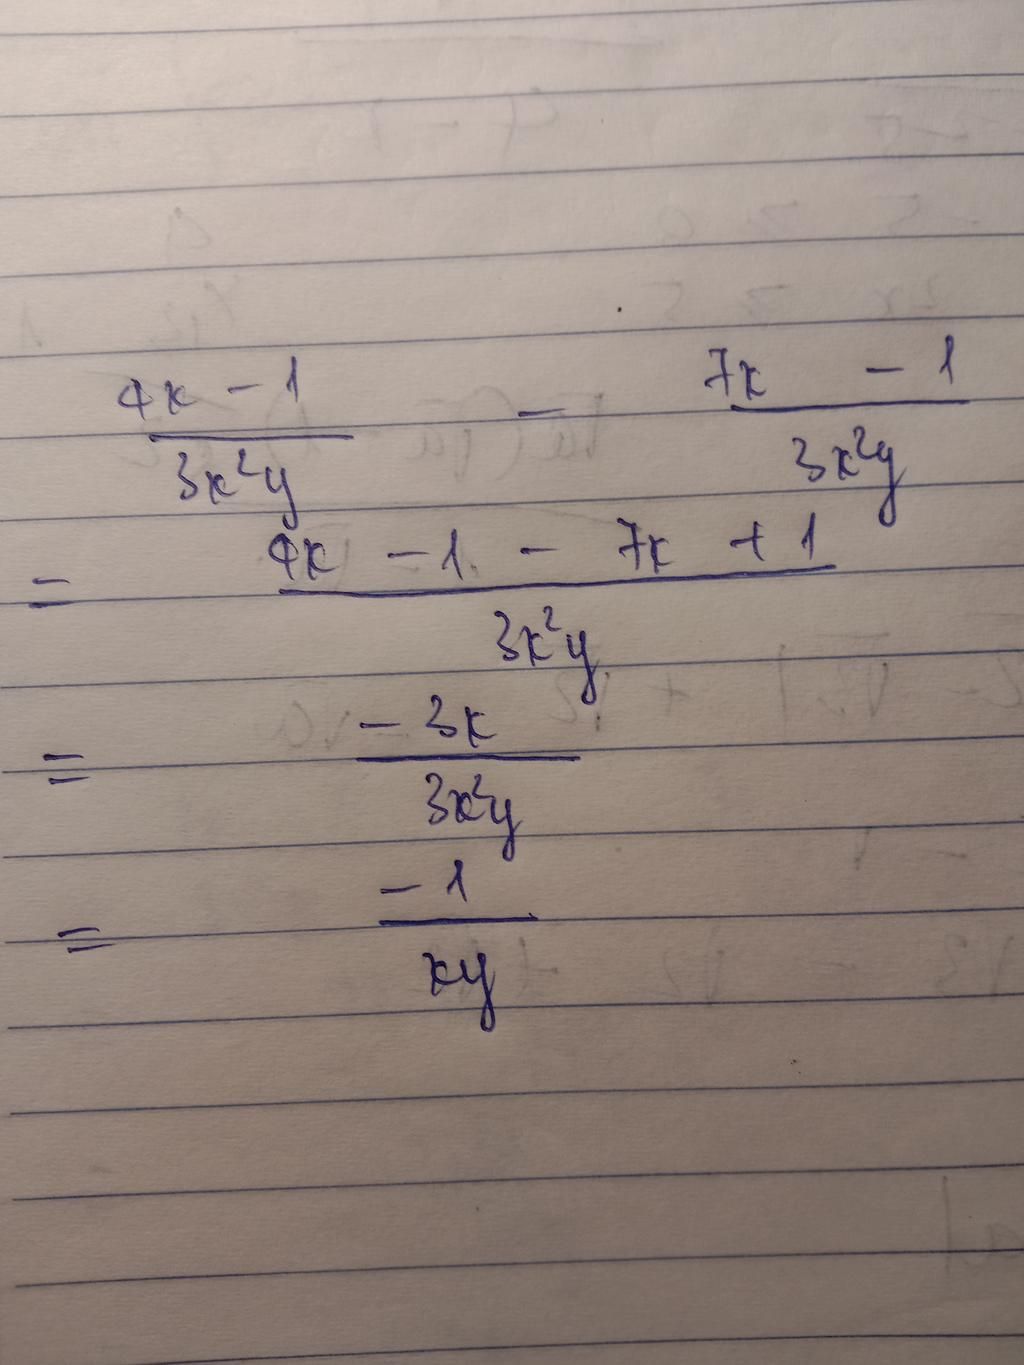 4x - 1 / 3x²y - 7x - 1 / 3x²y
= 4x - 1 - 7x + 1 / 3x²y
= - 3x / 3x²y
= - 1 / xy